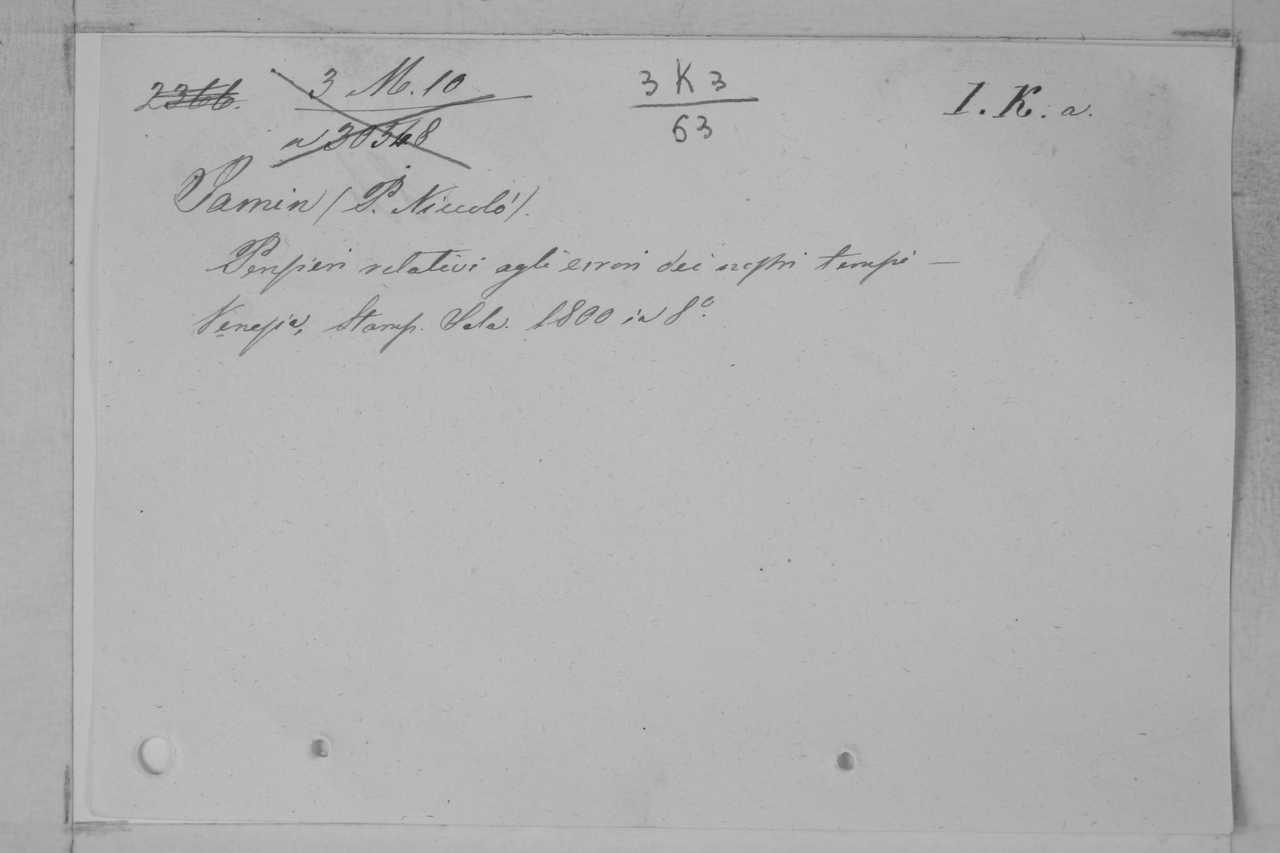 2366. 3 M. 10 3 K 3 I. K. a.
a 30348 63
Jamin (P. Niccolò).
Pensieri relativi agli errori dei nostri tempi —
Venezia, Stamp. Sala. 1800 in 8º.